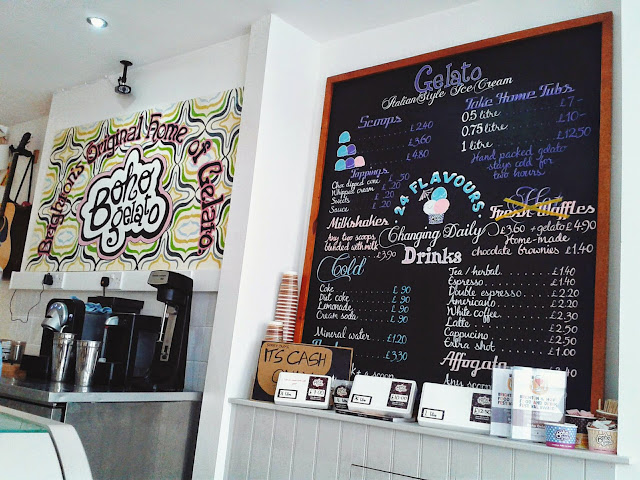 Brighton's Original Home of Gelato
Boho
gelato
Gelato
Italian Style Ice Cream
Scoops
£2.40
£3.60
£4.80
Toppings
Choc dipped cone £.20
Whipped cream £.50
Sweets £.20
Sauce £.20
Milkshakes
Any two scoops
blended with milk
£3.90
Cold
Coke £.90
Diet coke £.90
Lemonade £.90
Cream soda £.90
Mineral water £1.20
£3.30
a scoop
Take Home Tubs
0.5 litre £7-
0.75 litre £10-
1 litre £12.50
Hand packed gelato
stays cold for
two hours
24 FLAVOURS
Changing Daily
Fresh Waffles
£3.60 + gelato £4.90
Home-made
chocolate brownies £1.40
Drinks
Tea / herbal £1.40
Espresso £1.40
Double espresso £2.20
Americano £2.20
White coffee £2.30
Latte £2.50
Cappucino £2.50
Extra shot £1.00
Affogato
Any scoop
IT'S CASH